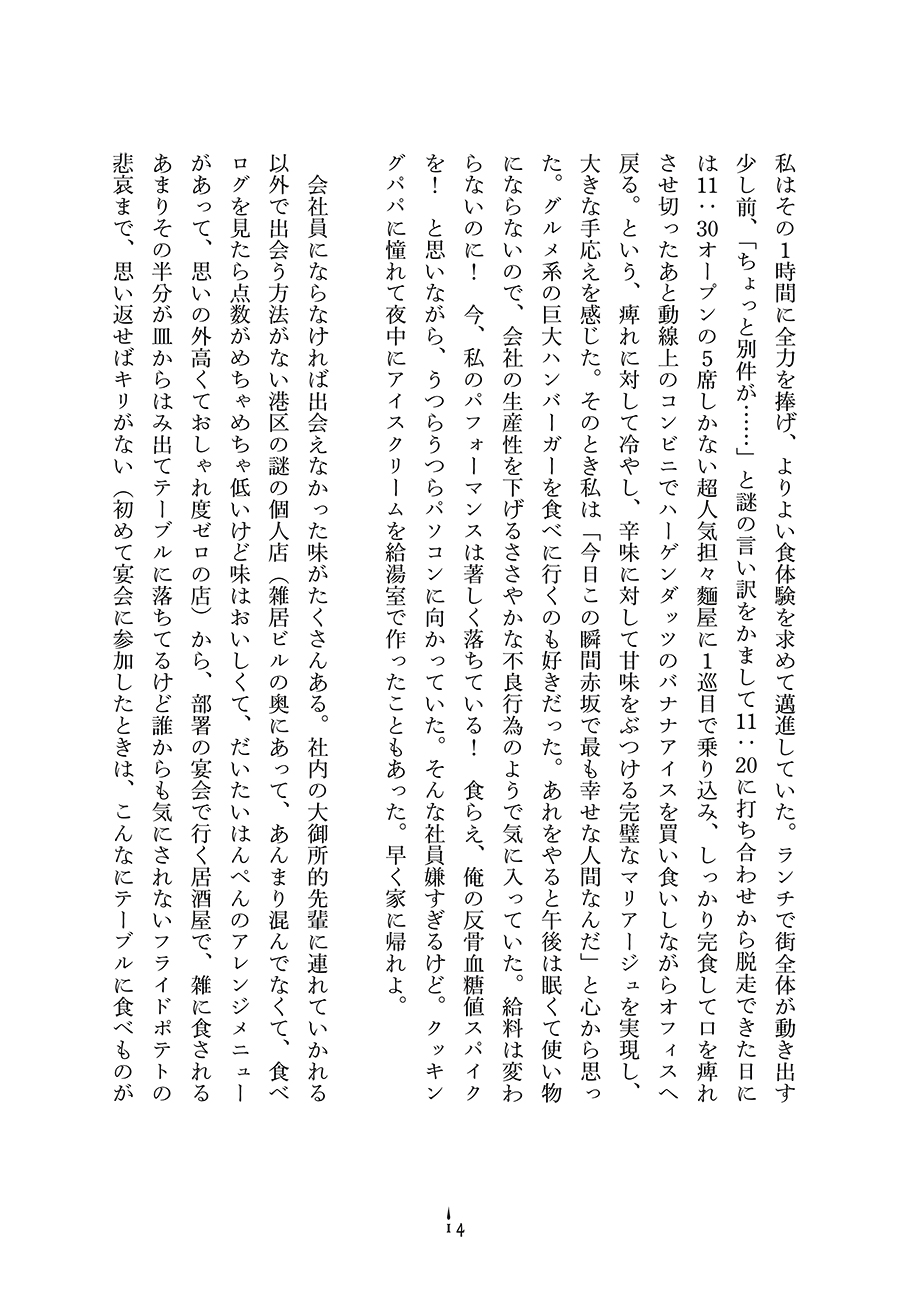 私はその1時間に全力を捧げ、よりよい食体験を求めて邁進していた。ランチで街全体が動き出す
少し前、「ちょっと別件が……」と謎の言い訳をかまして11：20に打ち合わせから脱走できた日に
は11：30オープンの5席しかない超人気担々麵屋に1巡目で乗り込み、しっかり完食して口を痺れ
させ切ったあと動線上のコンビニでハーゲンダッツのバナナアイスを買い食いしながらオフィスへ
戻る。という、痺れに対して冷やし、辛味に対して甘味をぶつける完璧なマリアージュを実現し、
大きな手応えを感じた。そのとき私は「今日この瞬間赤坂で最も幸せな人間なんだ」と心から思っ
た。グルメ系の巨大ハンバーガーを食べに行くのも好きだった。あれをやると午後は眠くて使い物
にならないので、会社の生産性を下げるささやかな不良行為のようで気に入っていた。給料は変わ
らないのに！　今、私のパフォーマンスは著しく落ちている！　食らえ、俺の反骨血糖値スパイク
を！　と思いながら、うつらうつらパソコンに向かっていた。そんな社員嫌すぎるけど。クッキン
グパパに憧れて夜中にアイスクリームを給湯室で作ったこともあった。早く家に帰れよ。
　会社員にならなければ出会えなかった味がたくさんある。社内の大御所的先輩に連れていかれる
以外で出会う方法がない港区の謎の個人店（雑居ビルの奥にあって、あんまり混んでなくて、食べ
ログを見たら点数がめちゃめちゃ低いけど味はおいしくて、だいたいはんぺんのアレンジメニュー
があって、思いの外高くておしゃれ度ゼロの店）から、部署の宴会で行く居酒屋で、雑に食される
あまりその半分が皿からはみ出てテーブルに落ちてるけど誰からも気にされないフライドポテトの
悲哀まで、思い返せばキリがない（初めて宴会に参加したときは、こんなにテーブルに食べものが
14